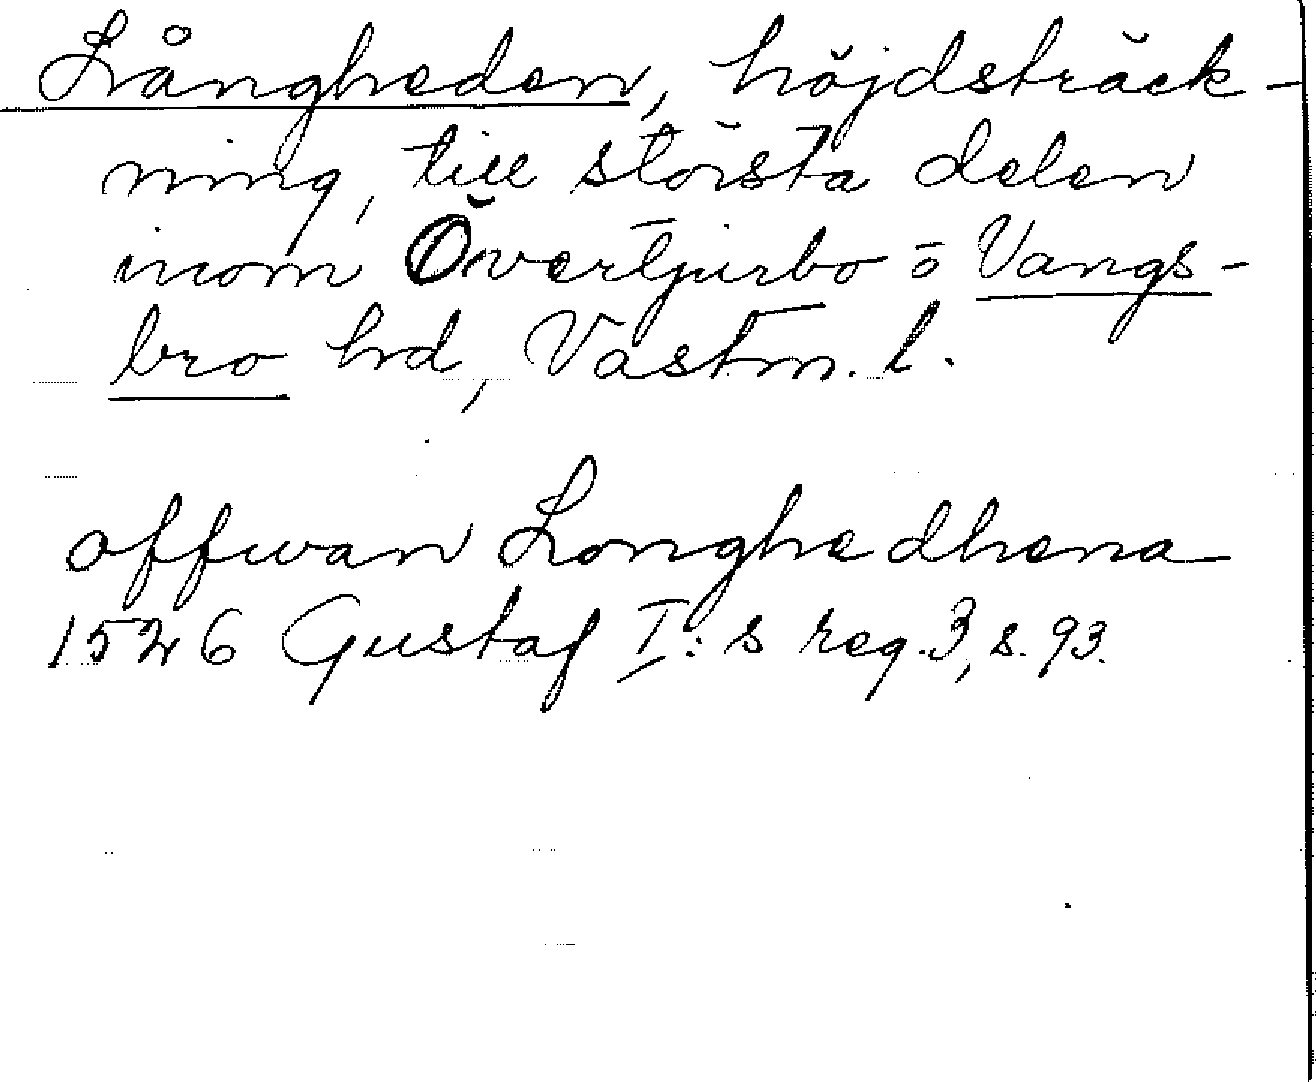 Långheden, höjdsträck-
ning, till största delen
inom Övertjurbo o Vangs-
bro hd, Västm. l.
offwan Longhedhena
1526 Gustaf I:s reg. 3, s. 93.